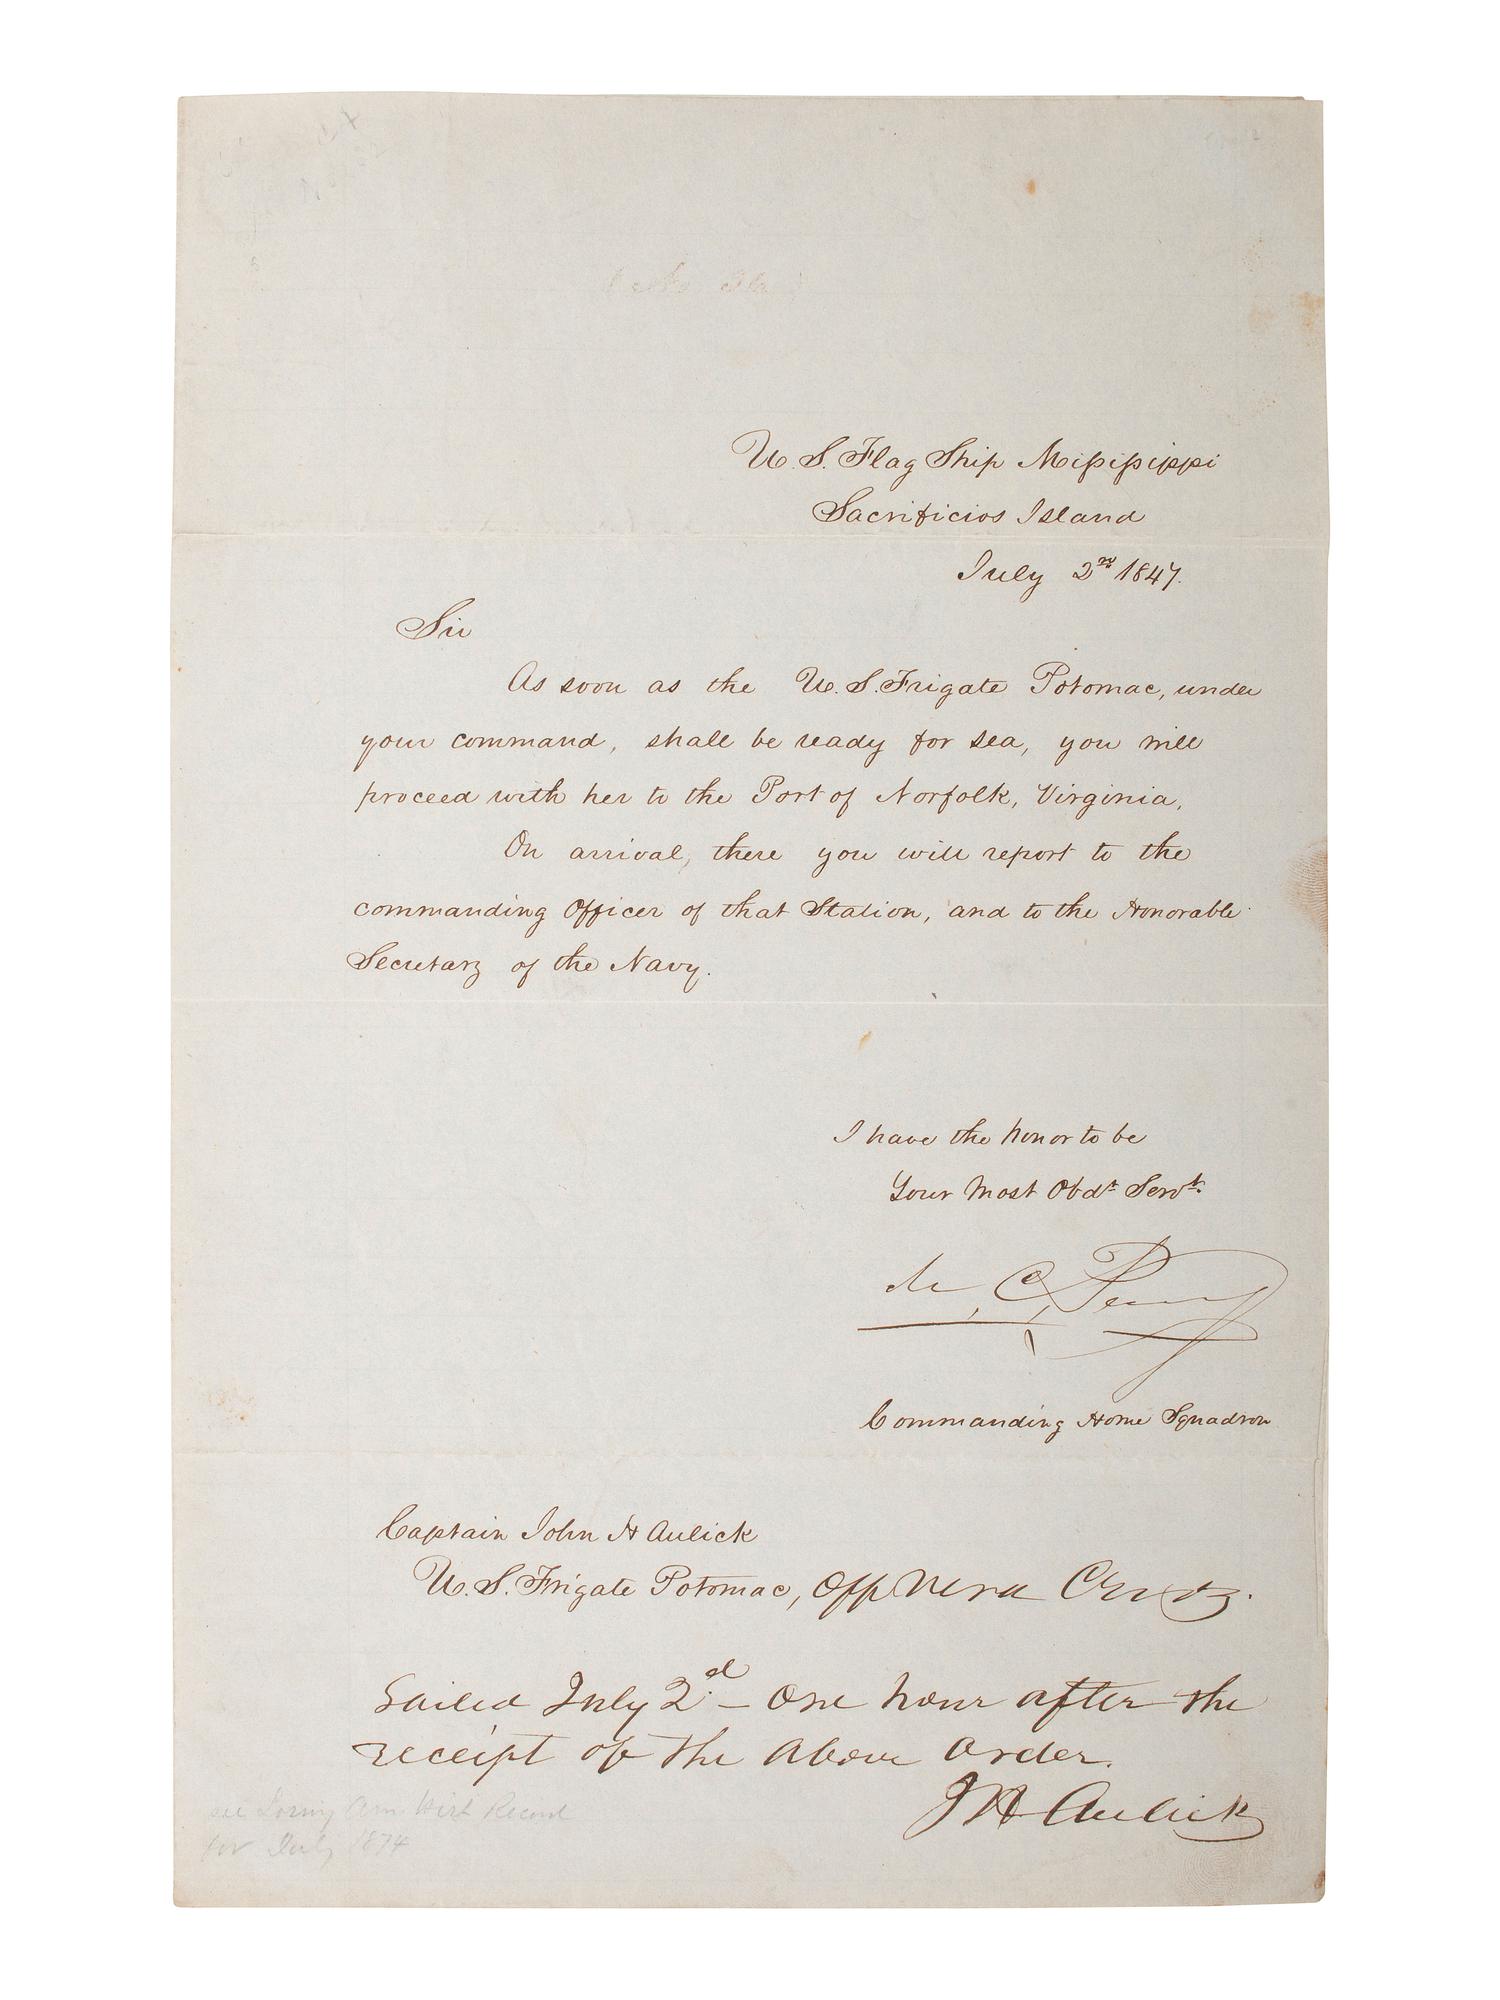 U. S. Flag Ship Mississippi
Sacrificios Island
July 2nd 1847.
Sir
As soon as the U. S. Frigate Potomac, under
your command, shall be ready for sea, you will
proceed with her to the Port of Norfolk, Virginia,
On arrival, there you will report to the
commanding Officer of that Station, and to the Honorable
Secretary of the Navy.
I have the honor to be
Your Most Obdt Servt.
M. C. Perry
Commanding Home Squadron
Captain John H Aulick
U. S. Frigate Potomac, Off Vera Cruz.
Sailed July 2d. – One hour after the
receipt of the above order.
J H Aulick
see Am Hist Record
for July 1874